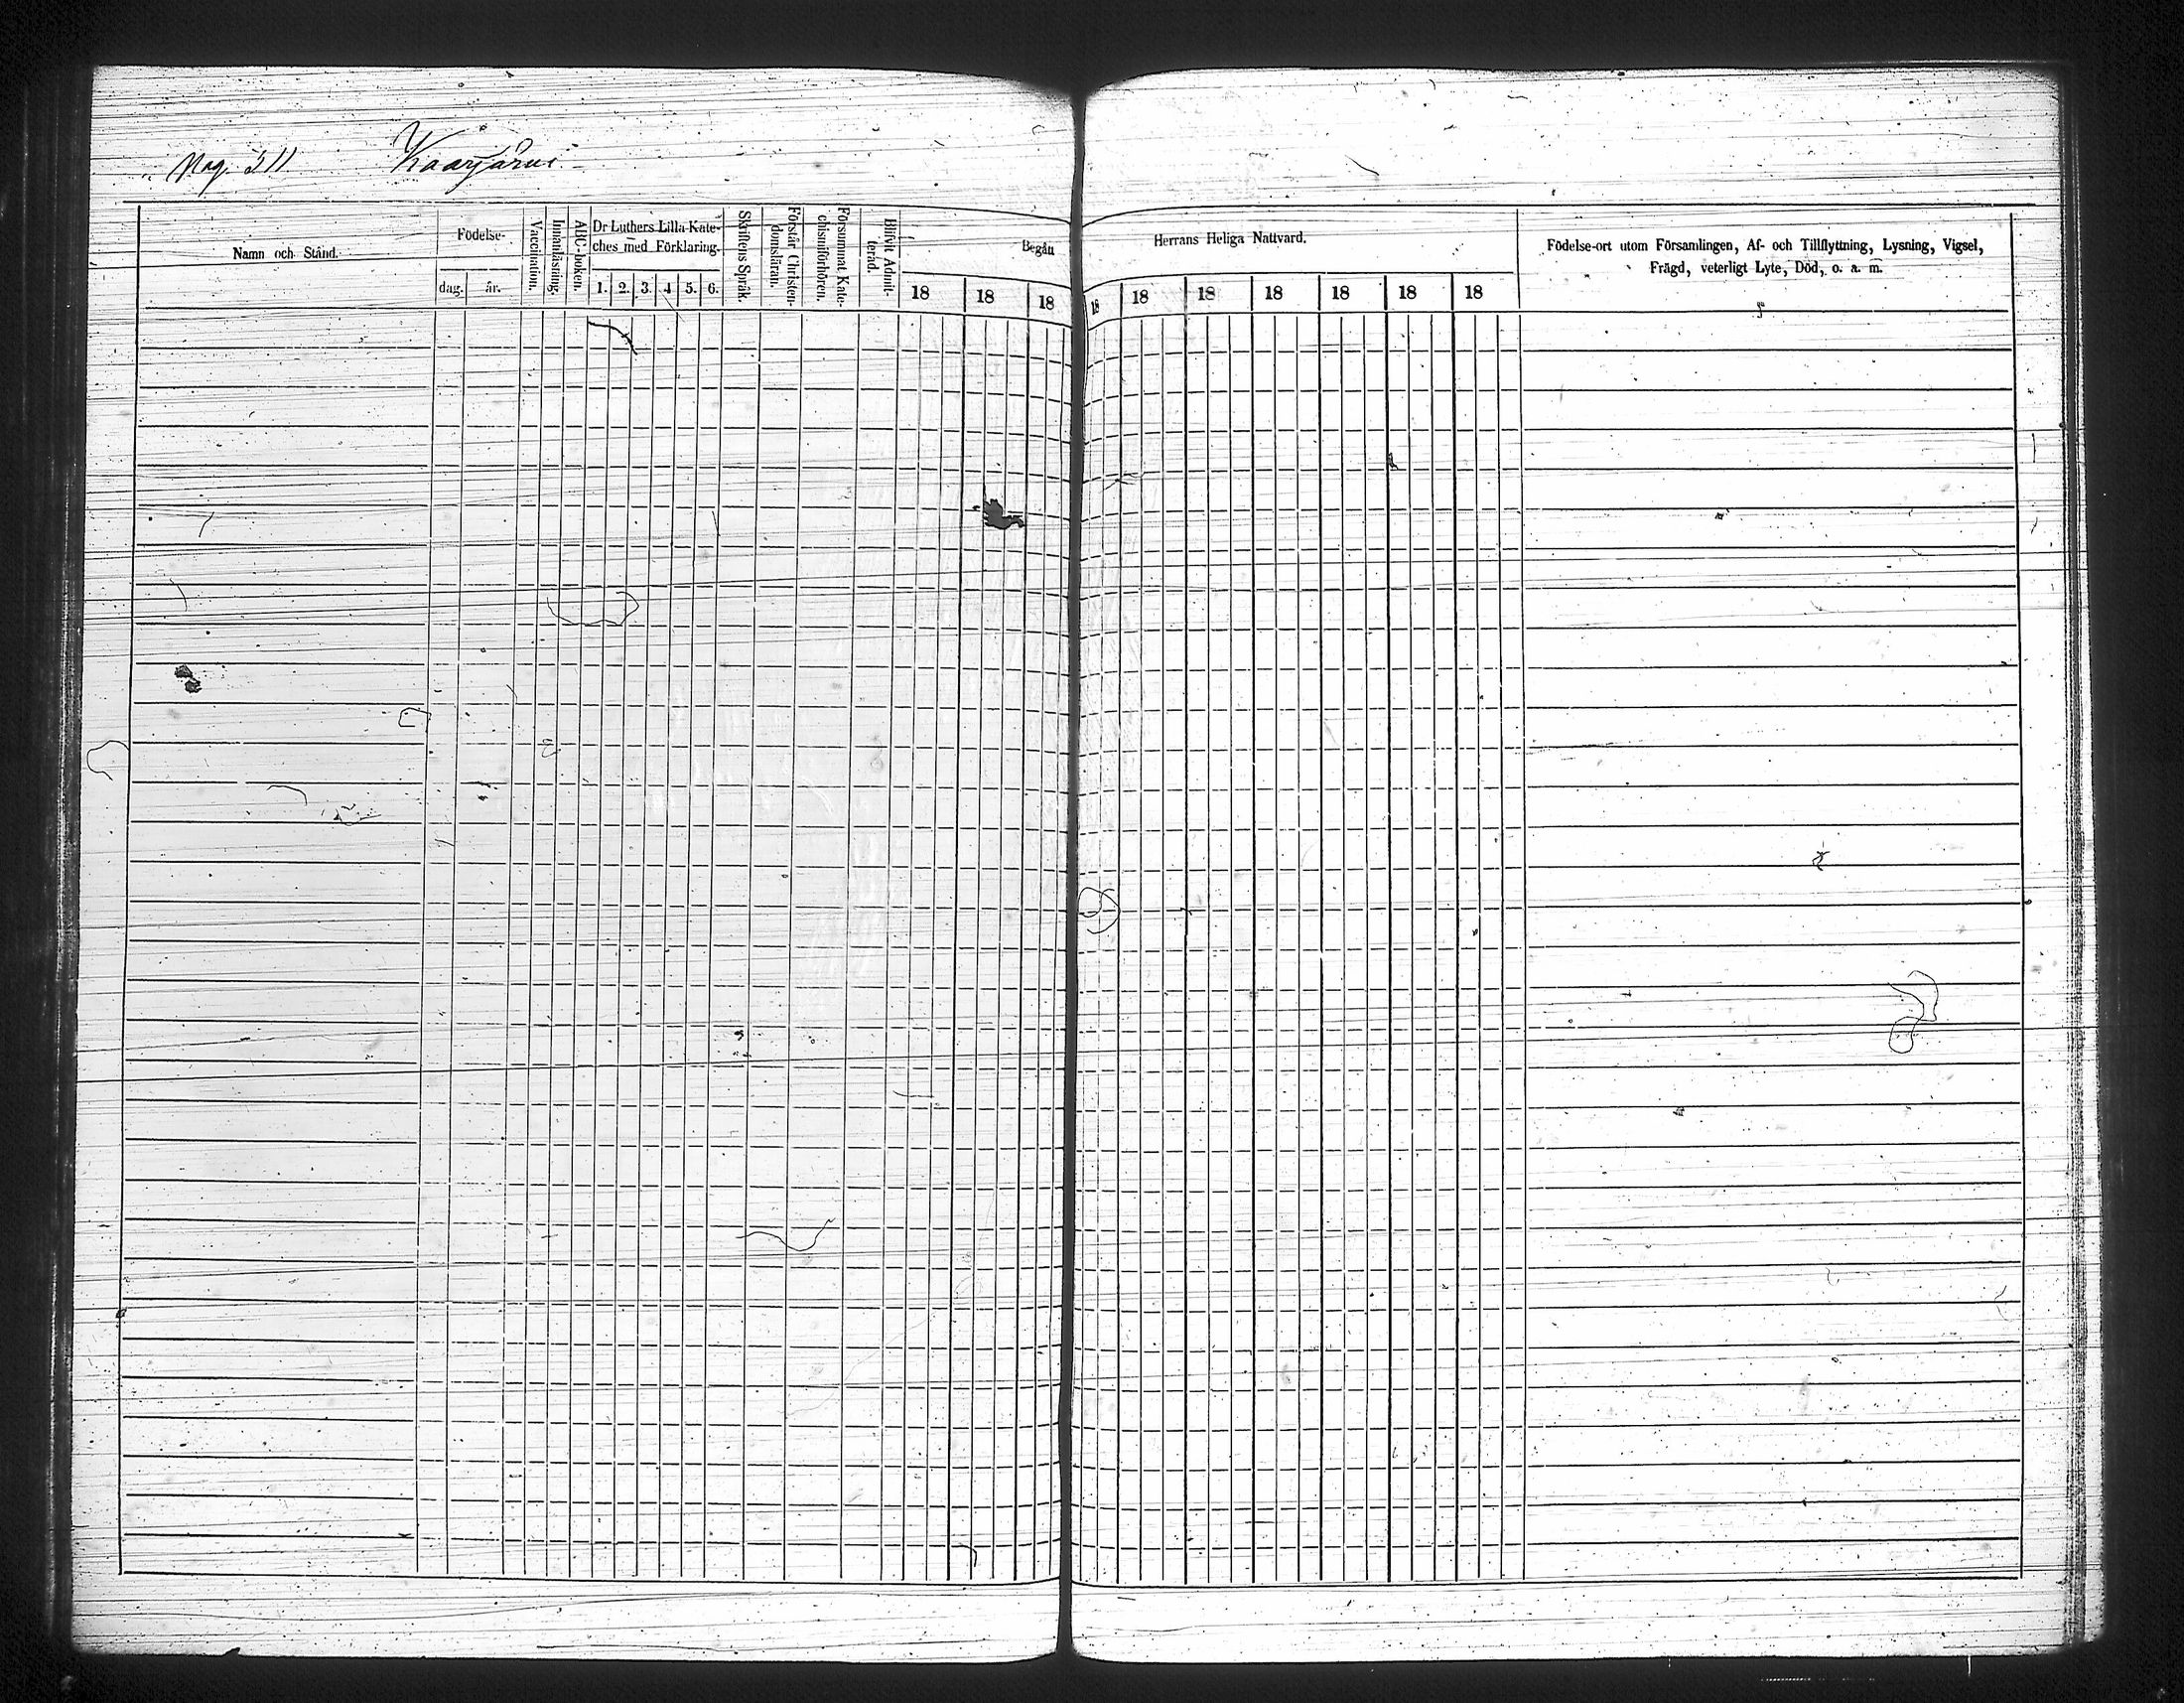 Pag. 211 Kaarjärvi
Namn och Stånd.
Födelse-
dag. år.
Vaccination.
Innanläsning.
ABC-boken.
Dr Luthers Lilla Kate-
ches med Förklaring.
1. 2. 3. 4 5. 6.
Skriftens Språk.
Förstår Christen-
domsläran.
Försummat Kate-
chismiförhören.
Blifvit Admit-
terad.
Begått Herrans Heliga Nattvard.
18 18 18 18 18 18 18 18 18 18
Födelse-ort utom Församlingen, Af- och Tillflyttning, Lysning, Vigsel,
Frägd, veterligt Lyte, Död, o. a. m.